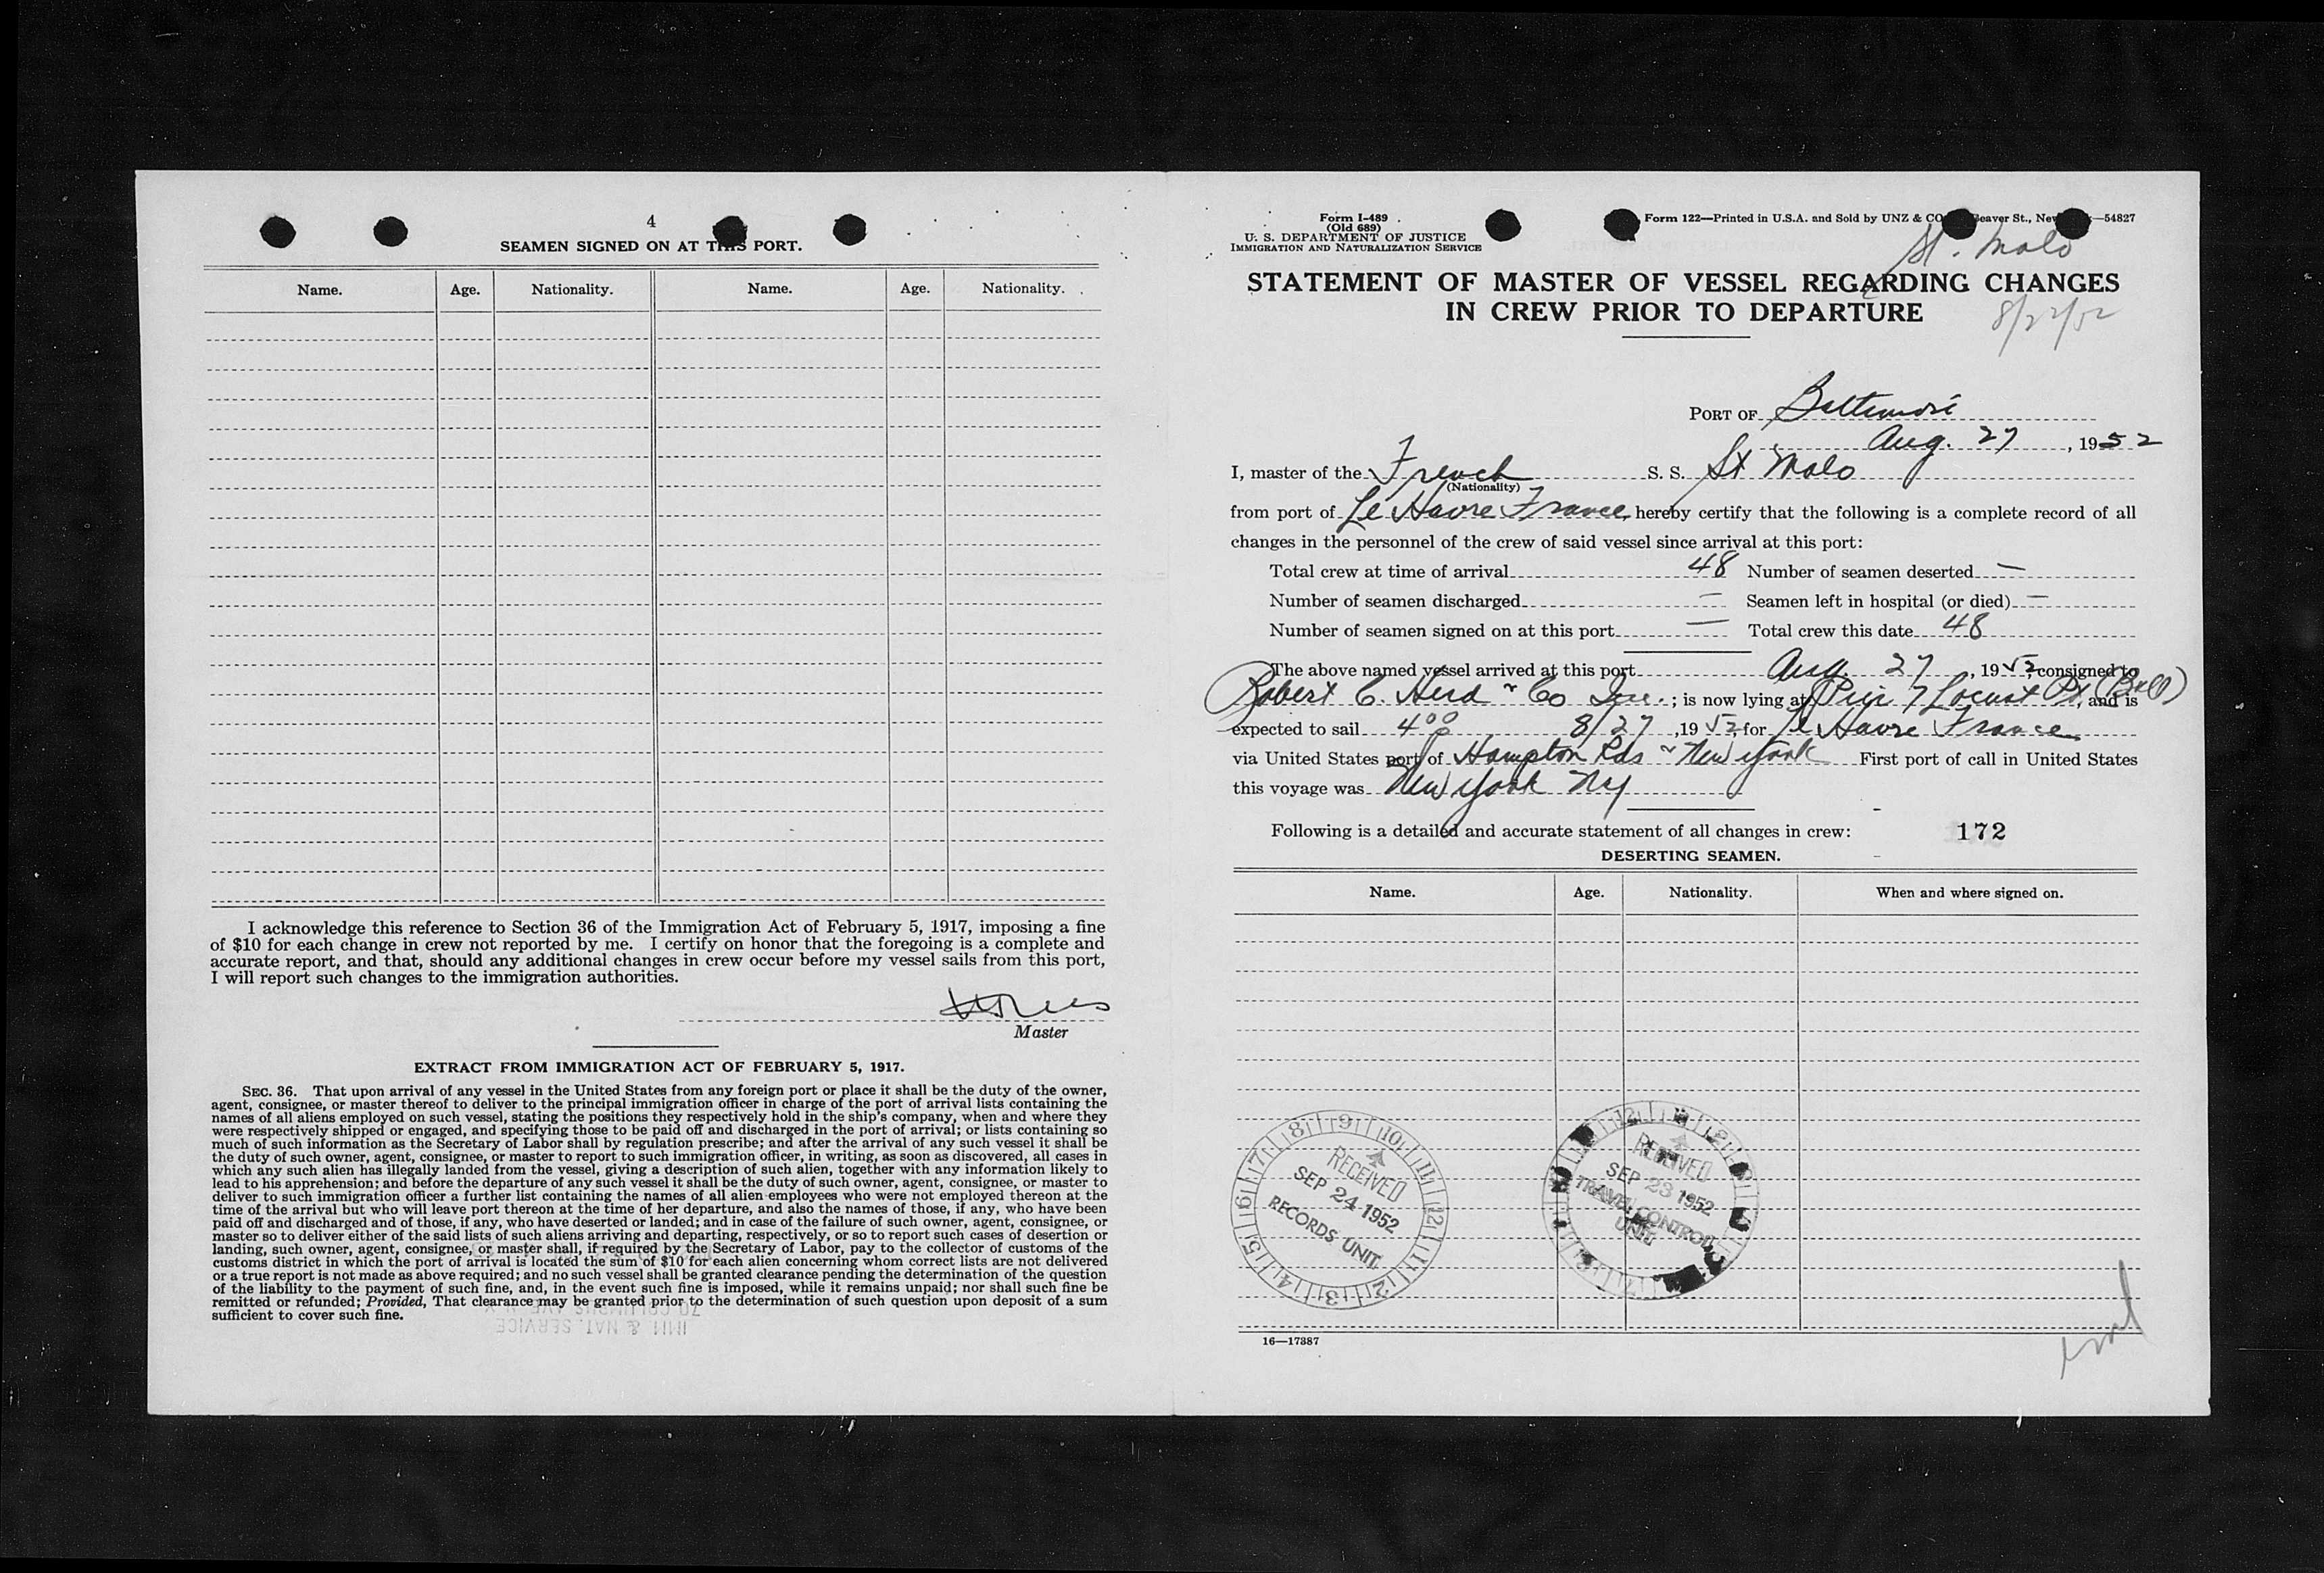 4
SEAMEN SIGNED ON AT THIS PORT.
Name. Age. Nationality. Name. Age. Nationality.
I acknowledge this reference to Section 36 of the Immigration Act of February 5, 1917, imposing a fine
of $10 for each change in crew not reported by me. I certify on honor that the foregoing is a complete and
accurate report, and that, should any additional changes in crew occur before my vessel sails from this port,
I will report such changes to the immigration authorities.
Master
EXTRACT FROM IMMIGRATION ACT OF FEBRUARY 5, 1917.
SEC. 36. That upon arrival of any vessel in the United States from any foreign port or place it shall be the duty of the owner,
agent, consignee, or master thereof to deliver to the principal immigration officer in charge of the port of arrival lists containing the
names of all aliens employed on such vessel, stating the positions they respectively hold in the ship's company, when and where they
were respectively shipped or engaged, and specifying those to be paid off and discharged in the port of arrival; or lists containing so
much of such information as the Secretary of Labor shall by regulation prescribe; and after the arrival of any such vessel it shall be
the duty of such owner, agent, consignee, or master to report to such immigration officer, in writing, as soon as discovered, all cases in
which any such alien has illegally landed from the vessel, giving a description of such alien, together with any information likely to
lead to his apprehension; and before the departure of any such vessel it shall be the duty of such owner, agent, consignee, or master to
deliver to such immigration officer a further list containing the names of all alien employees who were not employed thereon at the
time of the arrival but who will leave port thereon at the time of her departure, and also the names of those, if any, who have been
paid off and discharged and of those, if any, who have deserted or landed; and in case of the failure of such owner, agent, consignee, or
master so to deliver either of the said lists of such aliens arriving and departing, respectively, or so to report such cases of desertion or
landing, such owner, agent, consignee, or master shall, if required by the Secretary of Labor, pay to the collector of customs of the
customs district in which the port of arrival is located the sum of $10 for each alien concerning whom correct lists are not delivered
or a true report is not made as above required; and no such vessel shall be granted clearance pending the determination of the question
of the liability to the payment of such fine, and, in the event such fine is imposed, while it remains unpaid; nor shall such fine be
remitted or refunded; Provided, That clearance may be granted prior to the determination of such question upon deposit of a sum
sufficient to cover such fine.
IMM & NAT. SERVICE
Form I-489
(Old 689)
U. S. DEPARTMENT OF JUSTICE
IMMIGRATION AND NATURALIZATION SERVICE
Form 122—Printed in U.S.A. and Sold by UNZ & CO. Beaver St., New —54827
St. Malo
STATEMENT OF MASTER OF VESSEL REGARDING CHANGES
IN CREW PRIOR TO DEPARTURE
8/27/52
PORT OF Baltimore
Aug. 27, 1952
I, master of the French S. S. St Malo
(Nationality)
from port of Le Havre France, hereby certify that the following is a complete record of all
changes in the personnel of the crew of said vessel since arrival at this port:
Total crew at time of arrival 48 Number of seamen deserted —
Number of seamen discharged — Seamen left in hospital (or died) —
Number of seamen signed on at this port — Total crew this date 48
The above named vessel arrived at this port Aug. 27, 1952, consigned to
Robert C. Herd & Co Inc.; is now lying at Pier 7 Locust Pt (B&O), and is
expected to sail 4 00 p 8/27, 1952, for Le Havre France
via United States port of Hampton Rds & New York First port of call in United States
this voyage was New York NY
Following is a detailed and accurate statement of all changes in crew: 172
DESERTING SEAMEN.
Name. Age. Nationality. When and where signed on.
RECEIVED
SEP 24 1952
RECORDS UNIT
RECEIVED
SEP 23 1952
TRAVEL CONTROL
UNIT
16—17387